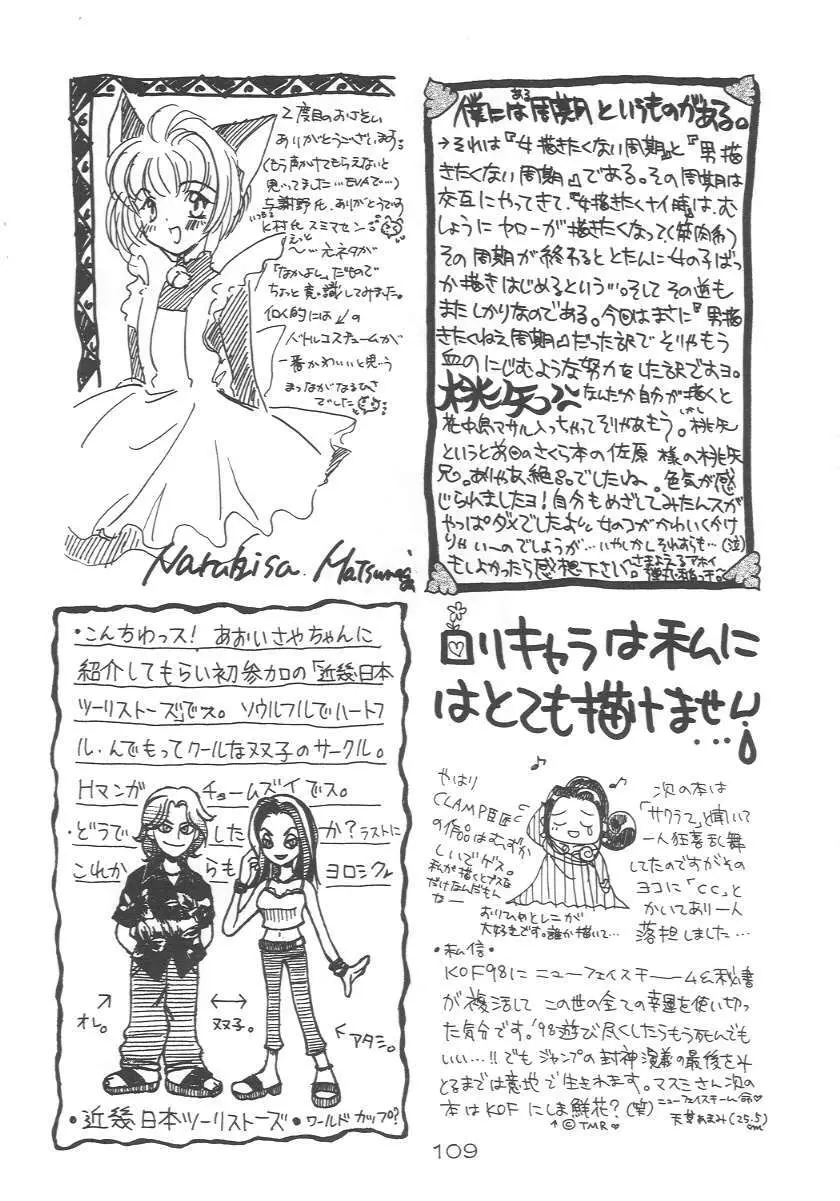 2度目のおさそい
ありがとうございます。
(もう声かけてもらえないと
思ってました…EVAで…)
与謝野氏、ありがとうです
いつも
K村氏スミマセンる
えっと
〜…元ネタが
「なかよし」だもので
ちょっと意識してみました。
個人的には↙の
バトルコスチュームが
一番かわいいと思う
まつながなるひさ
でした
Naruhisa. Matsunaga
僕には周期というものがある。
ある
→それは『女描きたくない周期』と『男描
きたくない周期』である。その周期は
交互にやってきて、『女描きたくナイ時』は、む
しょうにヤローが描きたくなって(筋肉系)
その周期が終わるととたんに女の子ばっ
か描きはじめるという…。そしてその逆も
またしかりなのである。今回はまさに『男描
きたくねえ周期』だった訳でそりゃもう
血のにじむような努力をした訳ですヨ。
桃矢って なんだか自分が描くと
花中島マサル入っちゃってそりゃあもう。しかし桃矢
というと前回のさくら本の佐原 様の桃矢
兄。ありゃあ、絶品でしたね。色気が感
じられましたヨ!自分もめざしてみたんスが
やっぱダメでしたよ。女のコがかわいくかけ
りゃい〜のでしょうが…いやしかしそれすらも…(泣)
もしよかったら感想下さい。さまよえるアホイ
・こんちわっス! あおいさやちゃんに
紹介してもらい初参加の「近幾日本
ツーリストーズ」でス。ソウルフルでハートフ
ル、んでもってクールな双子のサークル。
Hマンガ チョームズイでス。
・どうで した か?ラストに
これか らも ヨロシク
↗
オレ。
↔
双子。
↖アタシ。
・近幾日本ツーリストーズ・ワールドカップ?
ロリキャラは私に
はとても描けません
…
やはり
CLAMP巨匠
の作品はむずか
しいでゲス。
私が描くとブスな
だけなんだもん
なー
おりひめとレニが
大好きです。誰か描いて…
次の本は
「サクラで」と聞いて
一人狂喜乱舞
してたのですがその
ヨコに「CC」と
かいてあり一人
落担しました…
・私信・
KOF98にニューフェイスチームと秘書
が復活してこの世の全ての幸運を使い切っ
た気分です。'98遊び尽くしたらもう死んでも
いい…!!でもジャンプの封神演義の最後をみ
とるまでは意地で生きれます。マスミさん次の
本はKOFにしま鮮花?(笑)ニューフェイスチーム命♡
↑©TMR♡
天草あまみ(25.5)
cm
109